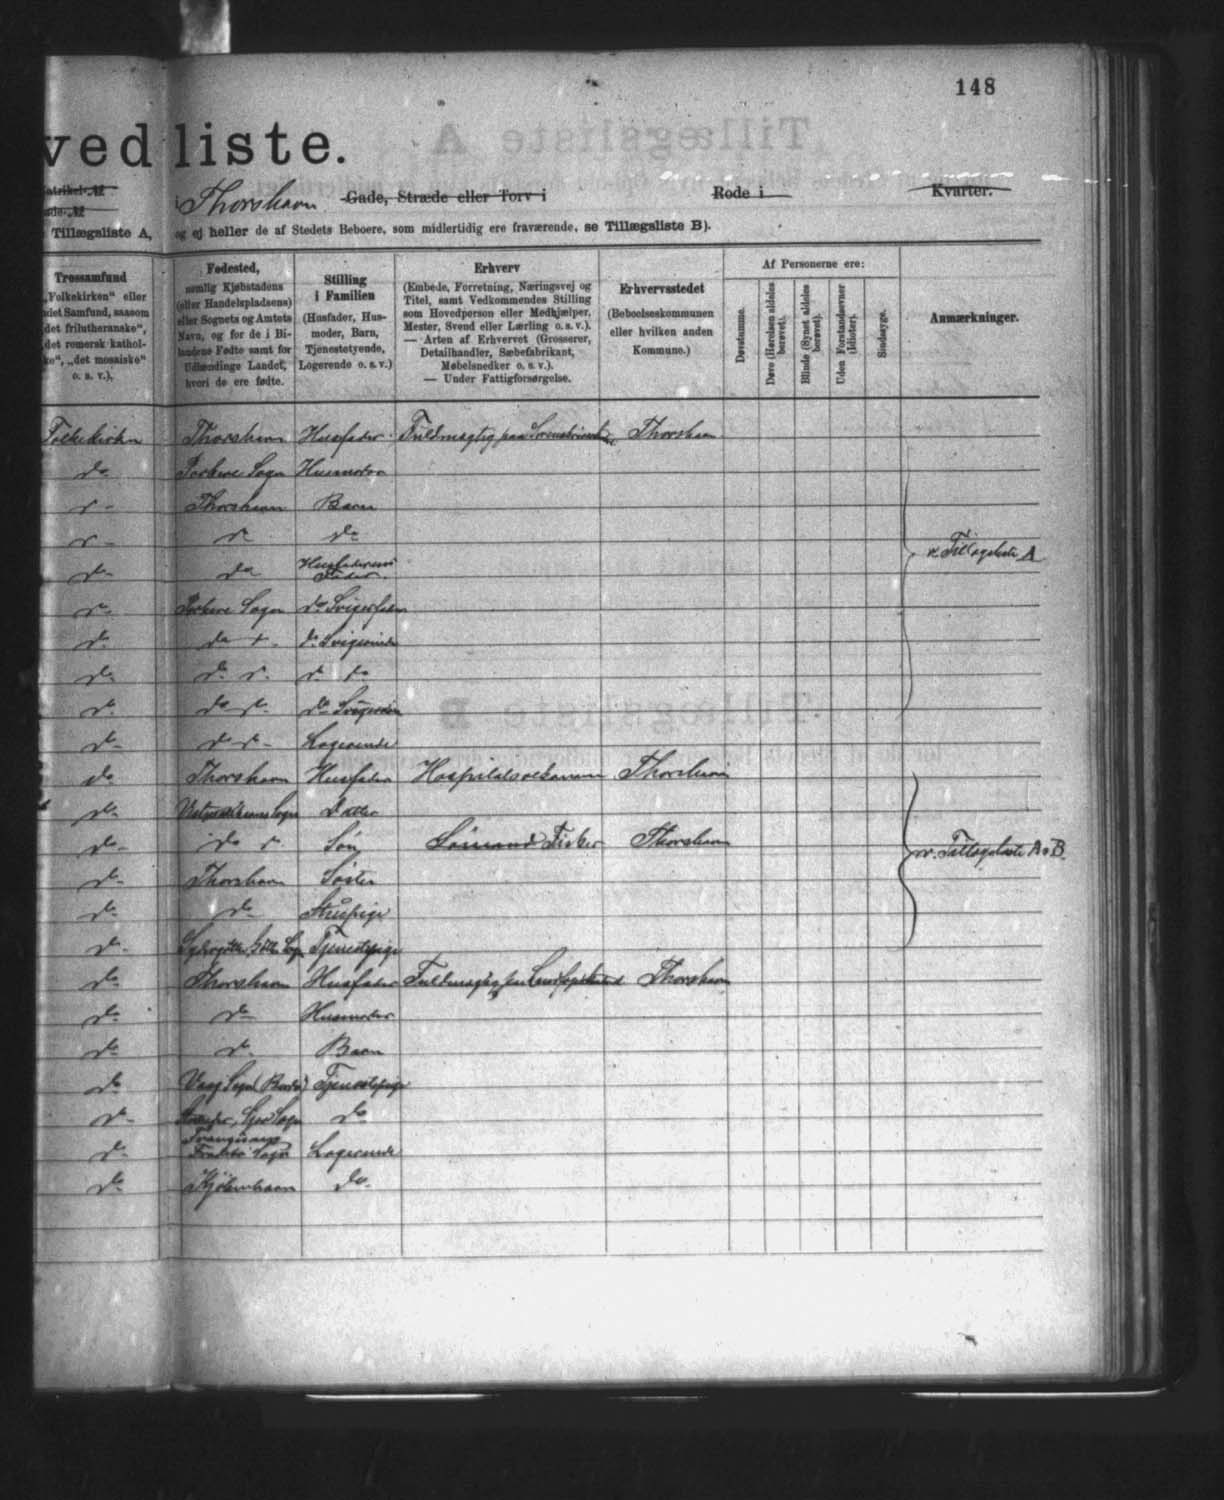 148
vedliste.
Thorshavn Gade, Stræde eller Torv i Rode i Kvarter.
Tillægsliste A, og ej heller de af Stedets Beboere, som midlertidig ere fraværende, se Tillægsliste B).
Trossamfund
„Folkekirken“ eller
det Samfund, saasom
det frilutheranske“,
det romersk kathol-
ke“, „det mosaiske“
o. s. v.),
Fødested,
nemlig Kjøbstadens
(eller Handelspladsens)
eller Sognets og Amtets
Navn, og for de i Bi-
landene Fødte samt for
Udlændinge Landet,
hvori de ere fødte.
Stilling
i Familien
(Husfader, Hus-
moder, Barn,
Tjenestetyende,
Logerende o. s. v.)
Erhverv
(Embede, Forretning, Næringsvej og
Titel, samt Vedkommendes Stilling
som Hovedperson eller Medhjælper,
Mester, Svend eller Lærling o. s. v.).
— Arten af Erhvervet (Grosserer,
Detailhandler, Sæbefabrikant,
Møbelsnedker o. s. v.).
— Under Fattigforsørgelse.
Erhvervsstedet
(Beboelseskommunen
eller hvilken anden
Kommune.)
Af Personerne ere:
Døvstumme.
Døve (Hørelsen aldeles
berøvet).
Blinde (Synet aldeles
berøvet).
Uden Forstandsevner
(Idioter).
Sindssyge.
Anmærkninger.
Folkekirken Thorshavn Husfader Fuldmægtig paa Thorshavn
do Porkere Sogn Husmoder
Thorshavn Barn
do
do do Husfaderens v. Tillægsliste A
Porkere Sogn do Svigerfader
do do do Svigerinde
do do
do do do
do Logerende
do Thorshavn Husfader Hospitalsoekonom Thorshavn
do Sogn Datter
do do Søn Sømand Fisker Thorshavn v. Tillægsliste A & B.
do Thorshavn Søster
do do
do Tjenestepige
do Thorshavn Husfader Fuldmægtig paa Thorshavn
do do Husmoder
do do Barn
do Vaag Sogn Tjenestepige
do Sogn do
do Sogn Logerende
do Kjøbenhavn do